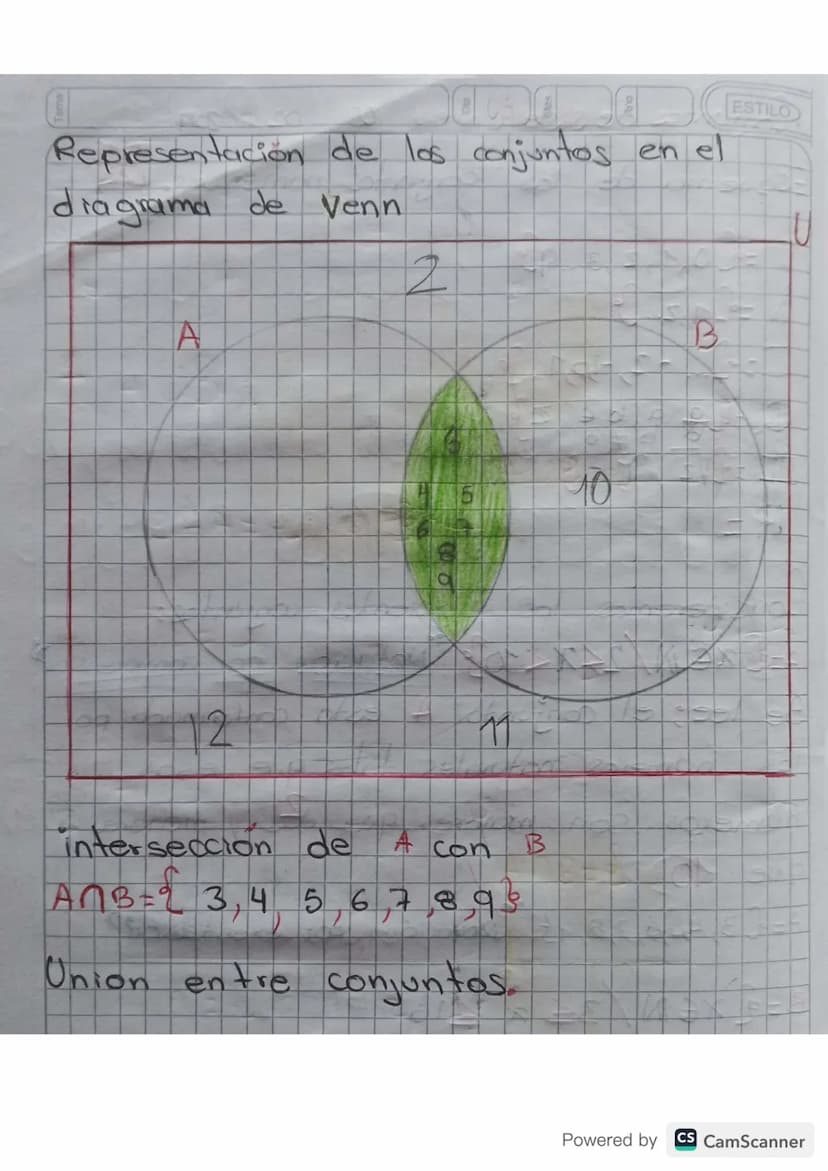 ESTILO
Representación de los conjuntos en el
diagrama de Venn
U
2
A
B
4 5
10
6 7
8
9
12
11
intersección de A con B
A∩B={ 3, 4, 5, 6, 7, 8, 9}
Union entre conjuntos.
Powered by CS CamScanner